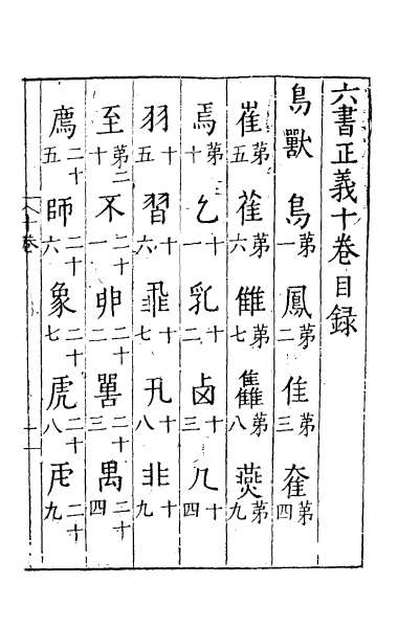 六書正義十卷目録
鳥獸 鳥第一 鳳第二 隹第三 奞第四
崔第五 雈第六 雔第七 雥第八 燕第九
焉第十 乞十一 乳十二 卤十三 几十四
羽十五 習十六 飛十七 卂十八 非十九
至第二十 不二十一 卵二十二 嘼二十三 禺二十四
廌二十五 師二十六 象二十七 虎二十八 虍二十九
十卷